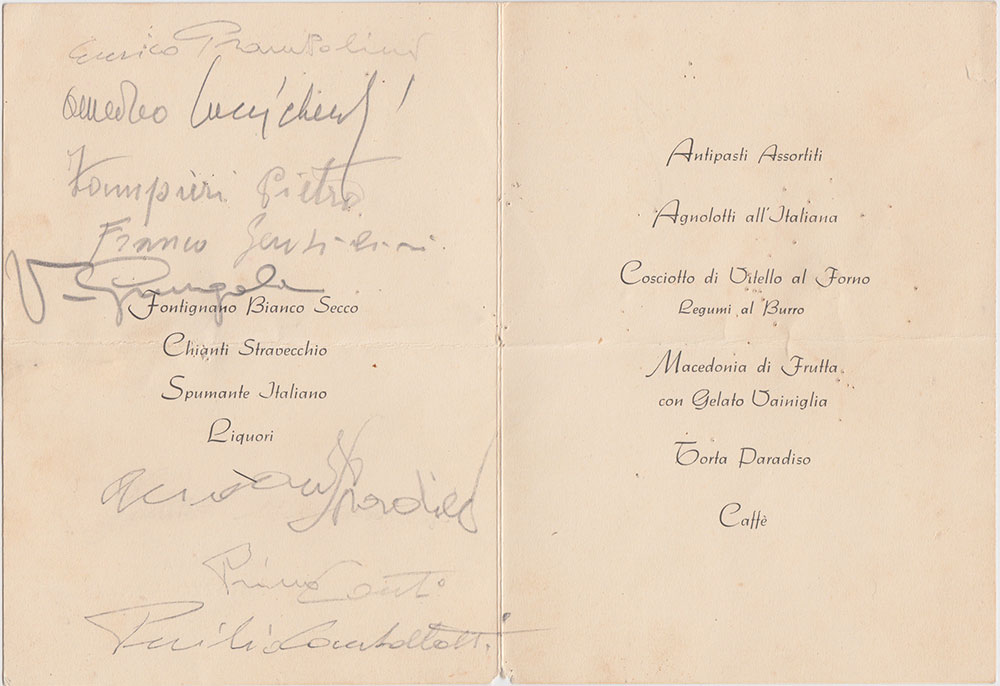 Enrico Prampolini
Amedeo
Zampieri Pietro
Franco Gentilini
V.
Fontignano Bianco Secco
Chianti Stravecchio
Spumante Italiano
Liquori
Primo Conti
Antipasti Assortiti
Agnolotti all'Italiana
Cosciotto di Vitello al Forno
Legumi al Burro
Macedonia di Frutta
con Gelato Vainiglia
Torta Paradiso
Caffè